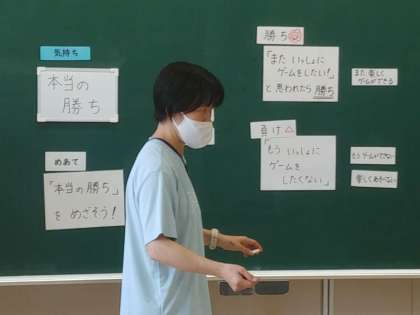 気持ち
本当の
勝ち
めあて
「本当の勝ち」
をめざそう!
勝ち
「また いっしょに
ゲームをしたい!」
と思われたら 勝ち
また 楽しく
ゲームができる
負け △
「もう いっしょに
ゲームを
したくない」
もうゲームができない
楽しくあそべない